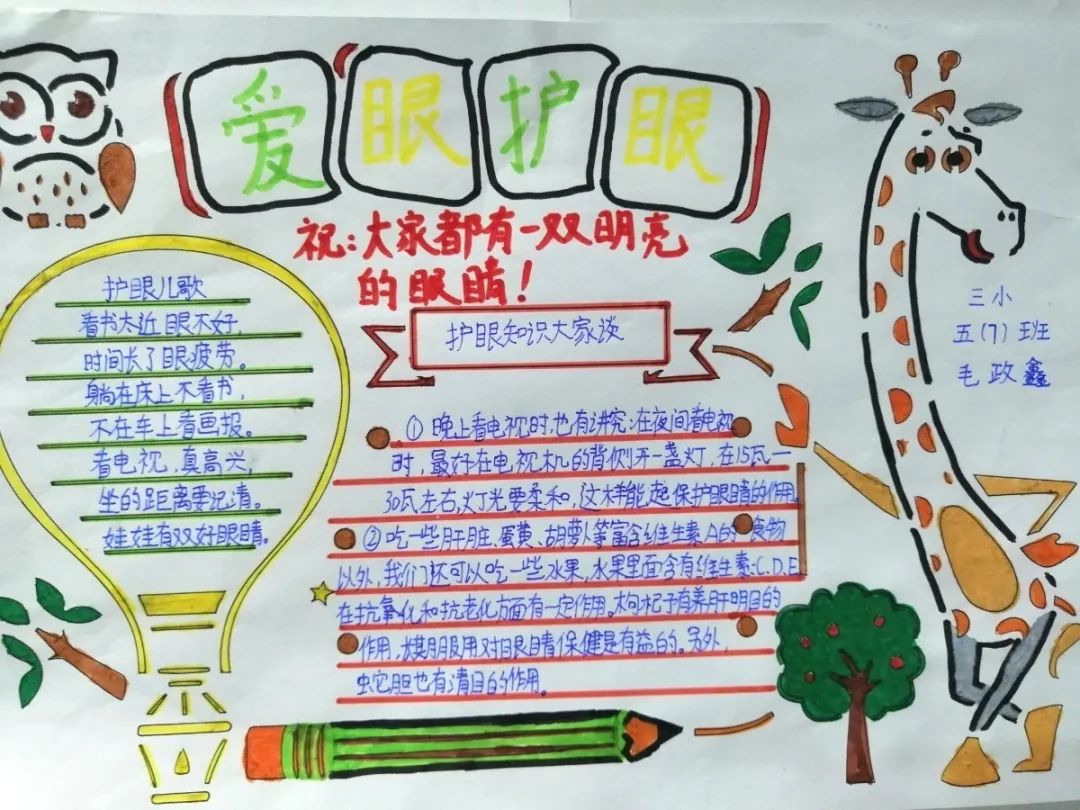 爱眼护眼
祝:大家都有一双明亮
的眼睛!
护眼儿歌
看书太近眼不好,
时间长了眼疲劳。
躺在床上不看书
不在车上看画报。
看电视,真高兴,
坐的距离要记清。
娃娃有双好眼睛。
护眼知识大家谈
①晚上看电视时也有讲究:在夜间看电视
时,最好在电视机的背侧开一盏灯,在15瓦一
30瓦左右,灯光要柔和,这样能起保护眼睛的作用。
②吃一些肝脏、蛋黄、胡萝卜等富含维生素A的食物
以外,我们还可以吃一些水果,水果里面含有维生素:C.D.E
在抗氧化和抗老化方面有一定作用。枸杞子有养肝明目的
作用,长期服用对眼睛保健是有益的。另外,
蛇胆也有清目的作用。
三小
五(7)班
毛政鑫